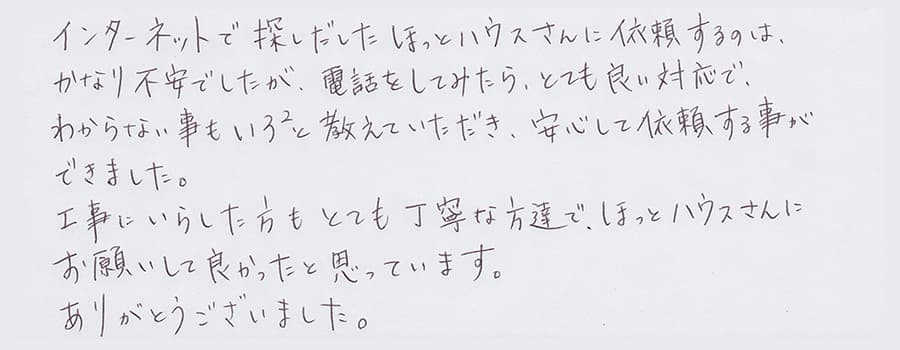 インターネットで探しだしたほっとハウスさんに依頼するのは、
かなり不安でしたが、電話をしてみたら、とても良い対応で、
わからない事もいろ²と教えていただき、安心して依頼する事が
できました。
工事にいらした方もとても丁寧な方達で、ほっとハウスさんに
お願いして良かったと思っています。
ありがとうございました。